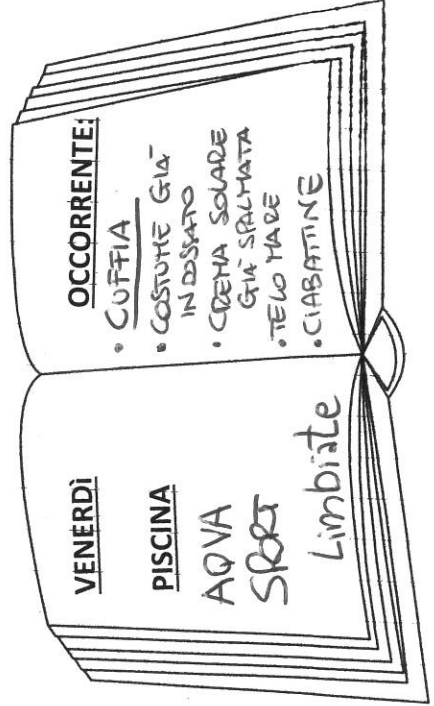 VENERDÌ
PISCINA
AQVA
SPORT
Limbiate
OCCORRENTE:
• CUFFIA
• COSTUME GIA'
INDOSSATO
• CREMA SOLARE
GIA' SPALMATA
• TELO MARE
• CIABATTINE